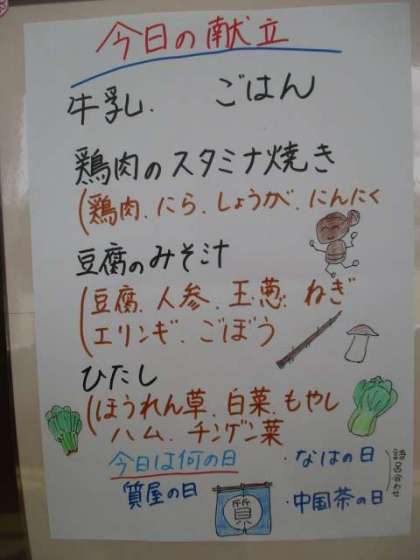 今日の献立
牛乳. ごはん
鶏肉のスタミナ焼き
(鶏肉、にら、しょうが、にんにく
豆腐のみそ汁
(豆腐、人参、玉葱、ねぎ
エリンギ、ごぼう
ひたし
(ほうれん草、白菜、もやし
ハム、チンゲン菜
今日は何の日
・なはの日
語呂合わせ
質屋の日
質
・中国茶の日